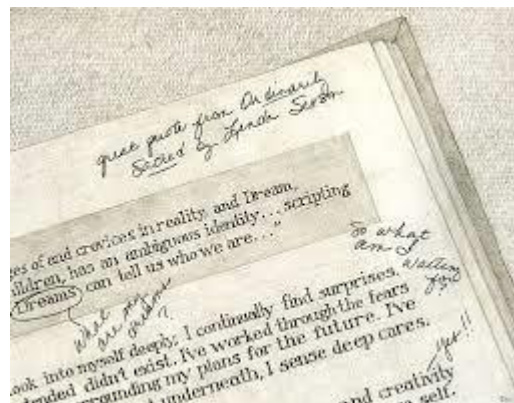 great quote from Ordinarily
Sacred by Lynda Sexson
ges of end crevices in reality, and Dream,
ildren, has an ambiguous identity... scripting
Dreams can tell us who we are..."
so what
am I
waiting
for?
what
are my
dreams
?
ook into myself deeply; I continually find surprises.
tended didn't exist. I've worked through the fears
rrounding my plans for the future. I've
underneath, I sense deep cares.
yes!!
and creativity
self.